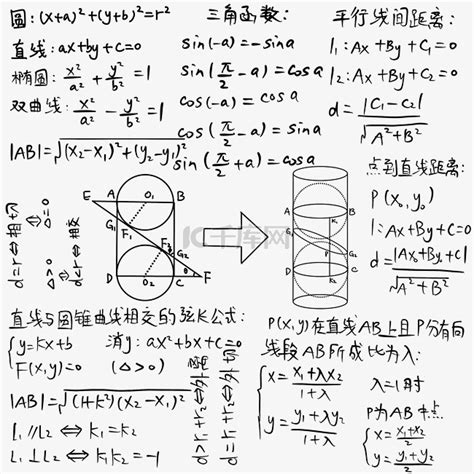 圆: (x+a)²+(y+b)²=r²
直线: ax+by+c=0
椭圆: x²/a² + y²/b² = 1
双曲线: x²/a² - y²/b² = 1
|AB|=√(X₂-X₁)²+(y₂-y₁)²
三角函数:
sin(-a)=-sina
sin(π/2-a)=cosa
cos(-a)=cosa
cos(π/2-a)=sina
sin(π/2+a)=cosa
平行线间距离:
l₁:Ax+By+C₁=0
l₂:Ax+By+C₂=0
d=|C₁-C₂|/√A²+B²
点到直线距离:
P(X₀,y₀)
l:Ax+By+C=0
d=|AX₀+By₀+C|/√A²+B²
A O₁ B
E
G₁ F₁
F₂ G₂
D O₂ C F
A B
K₁
G₁
G₂
D K₂ C
千库网
d=r⇔相切⇔Δ=0
直线与圆锥曲线相交的弦长公式:
y=kx+b
F(x,y)=0
消y: ax²+bx+c=0
(Δ>0)
|AB|=√(1+k²)(X₂-X₁)²
l₁//l₂⇔k₁=k₂
l₁⊥l₂⇔k₁k₂=-1
d=r₁+r₂⇔外切
d>r₁+r₂⇔外离
P(x,y)在直线AB上且P分有向
线段AB所成比为λ:
x=X₁+λX₂/1+λ
y=y₁+λy₂/1+λ
λ=1时
P为AB中点
x=x₁+x₂/2
y=y₁+y₂/2